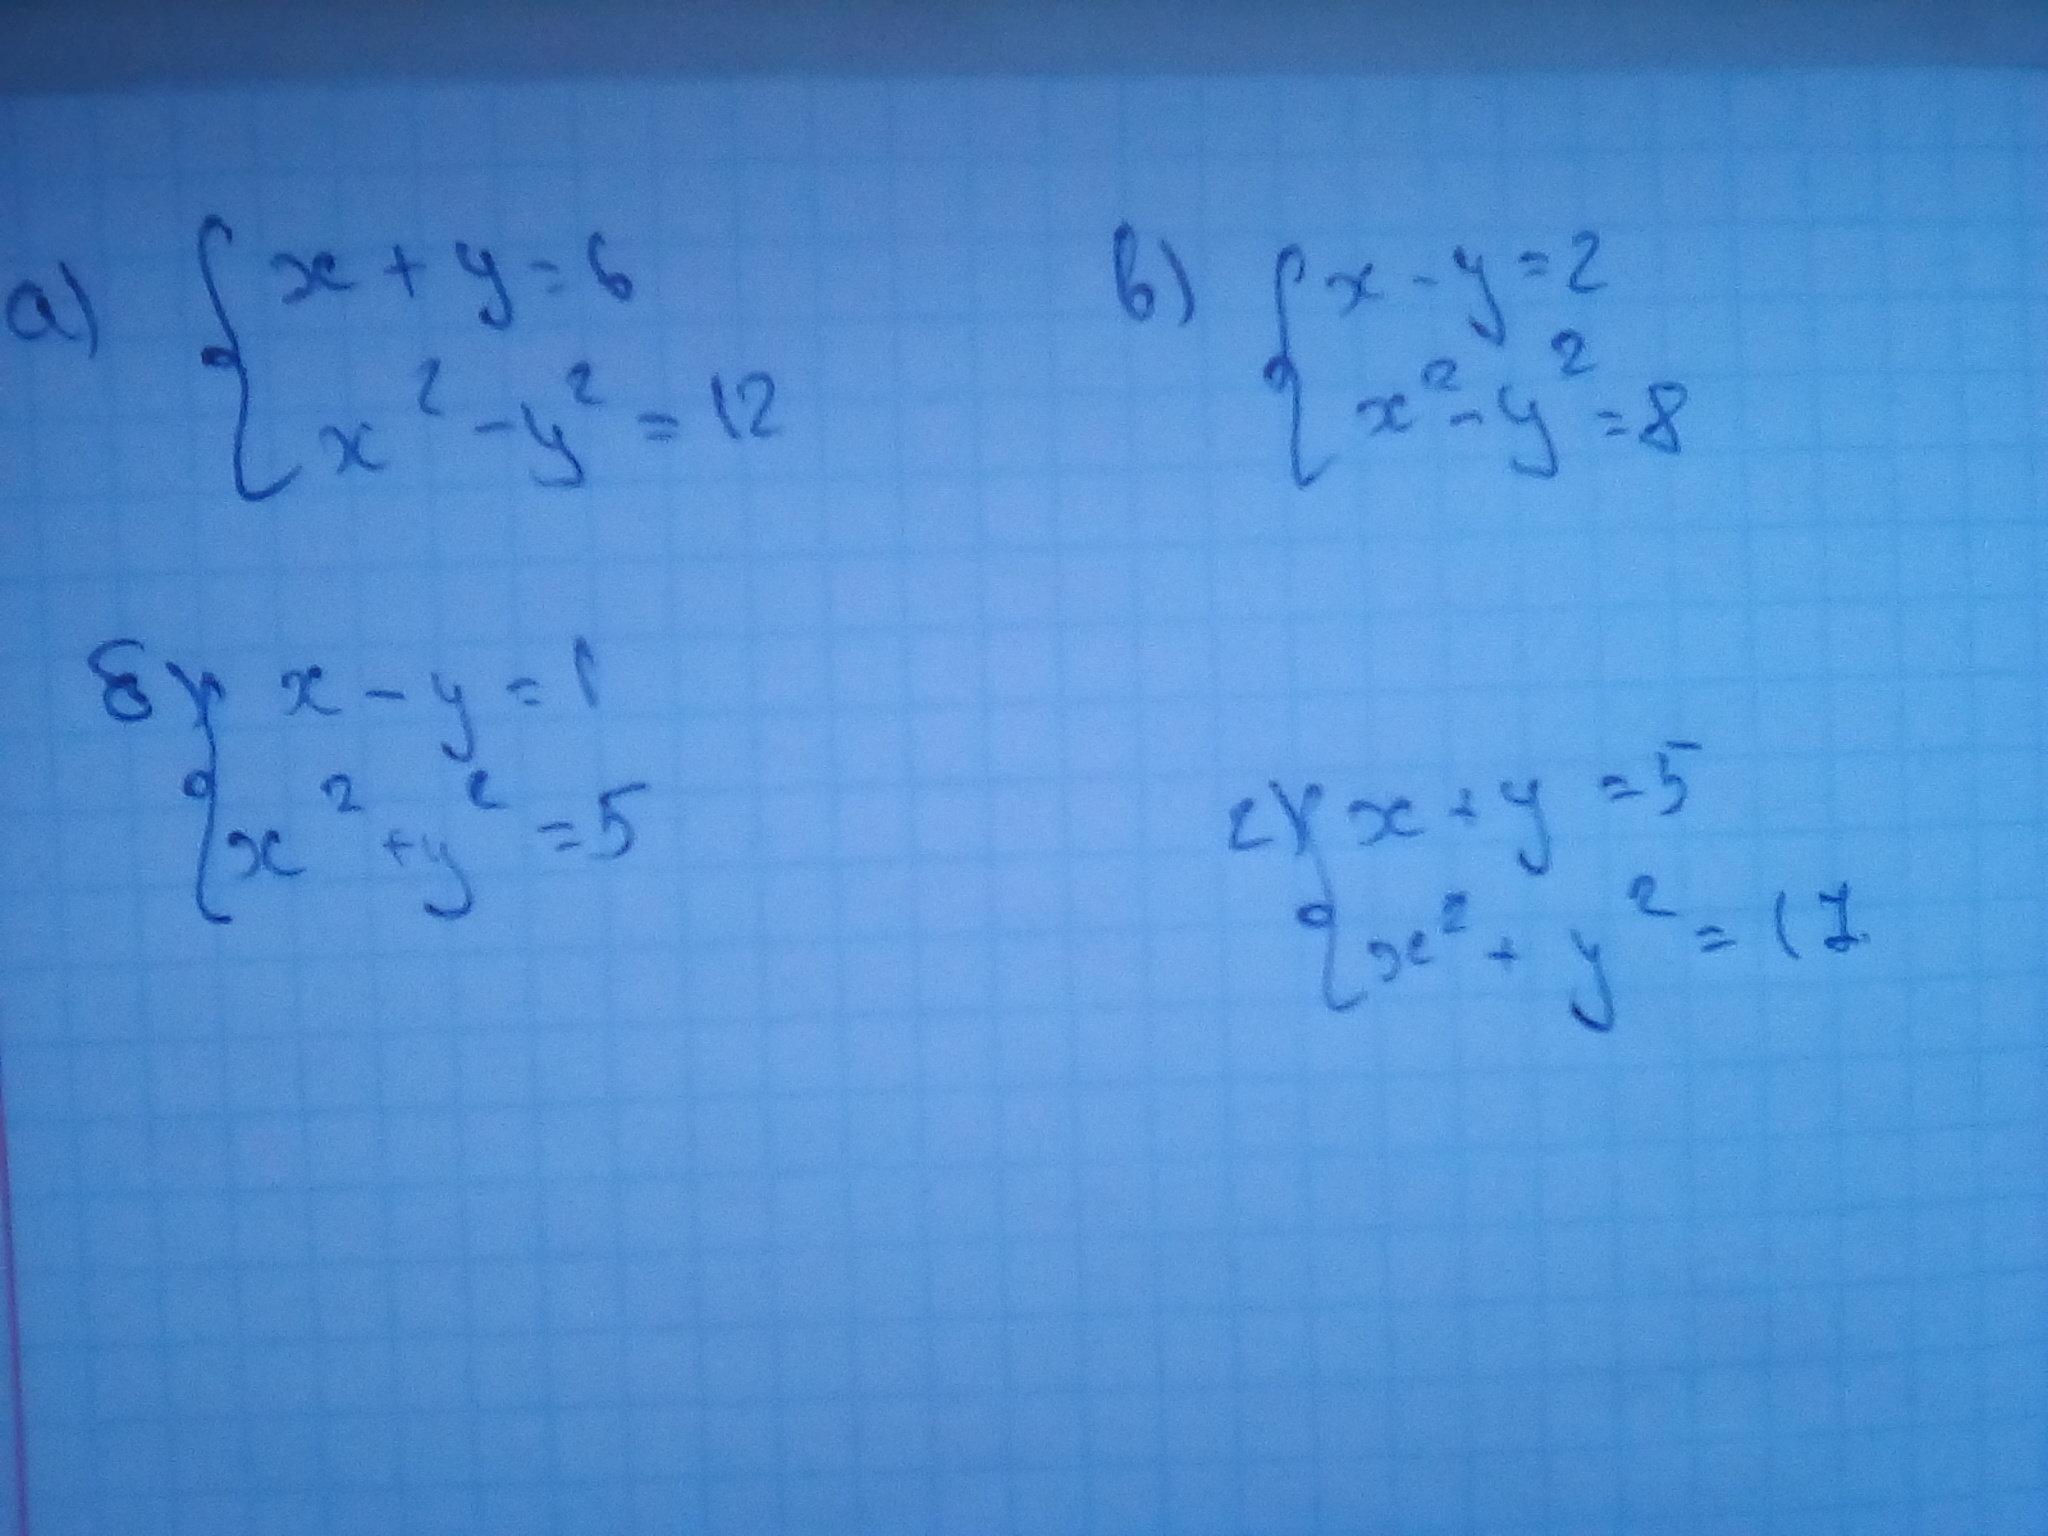 а) { x + y = 6
x² - y² = 12
в) { x - y = 2
x² - y² = 8
б) { x - y = 1
x² + y² = 5
г) { x + y = 5
x² + y² = 17